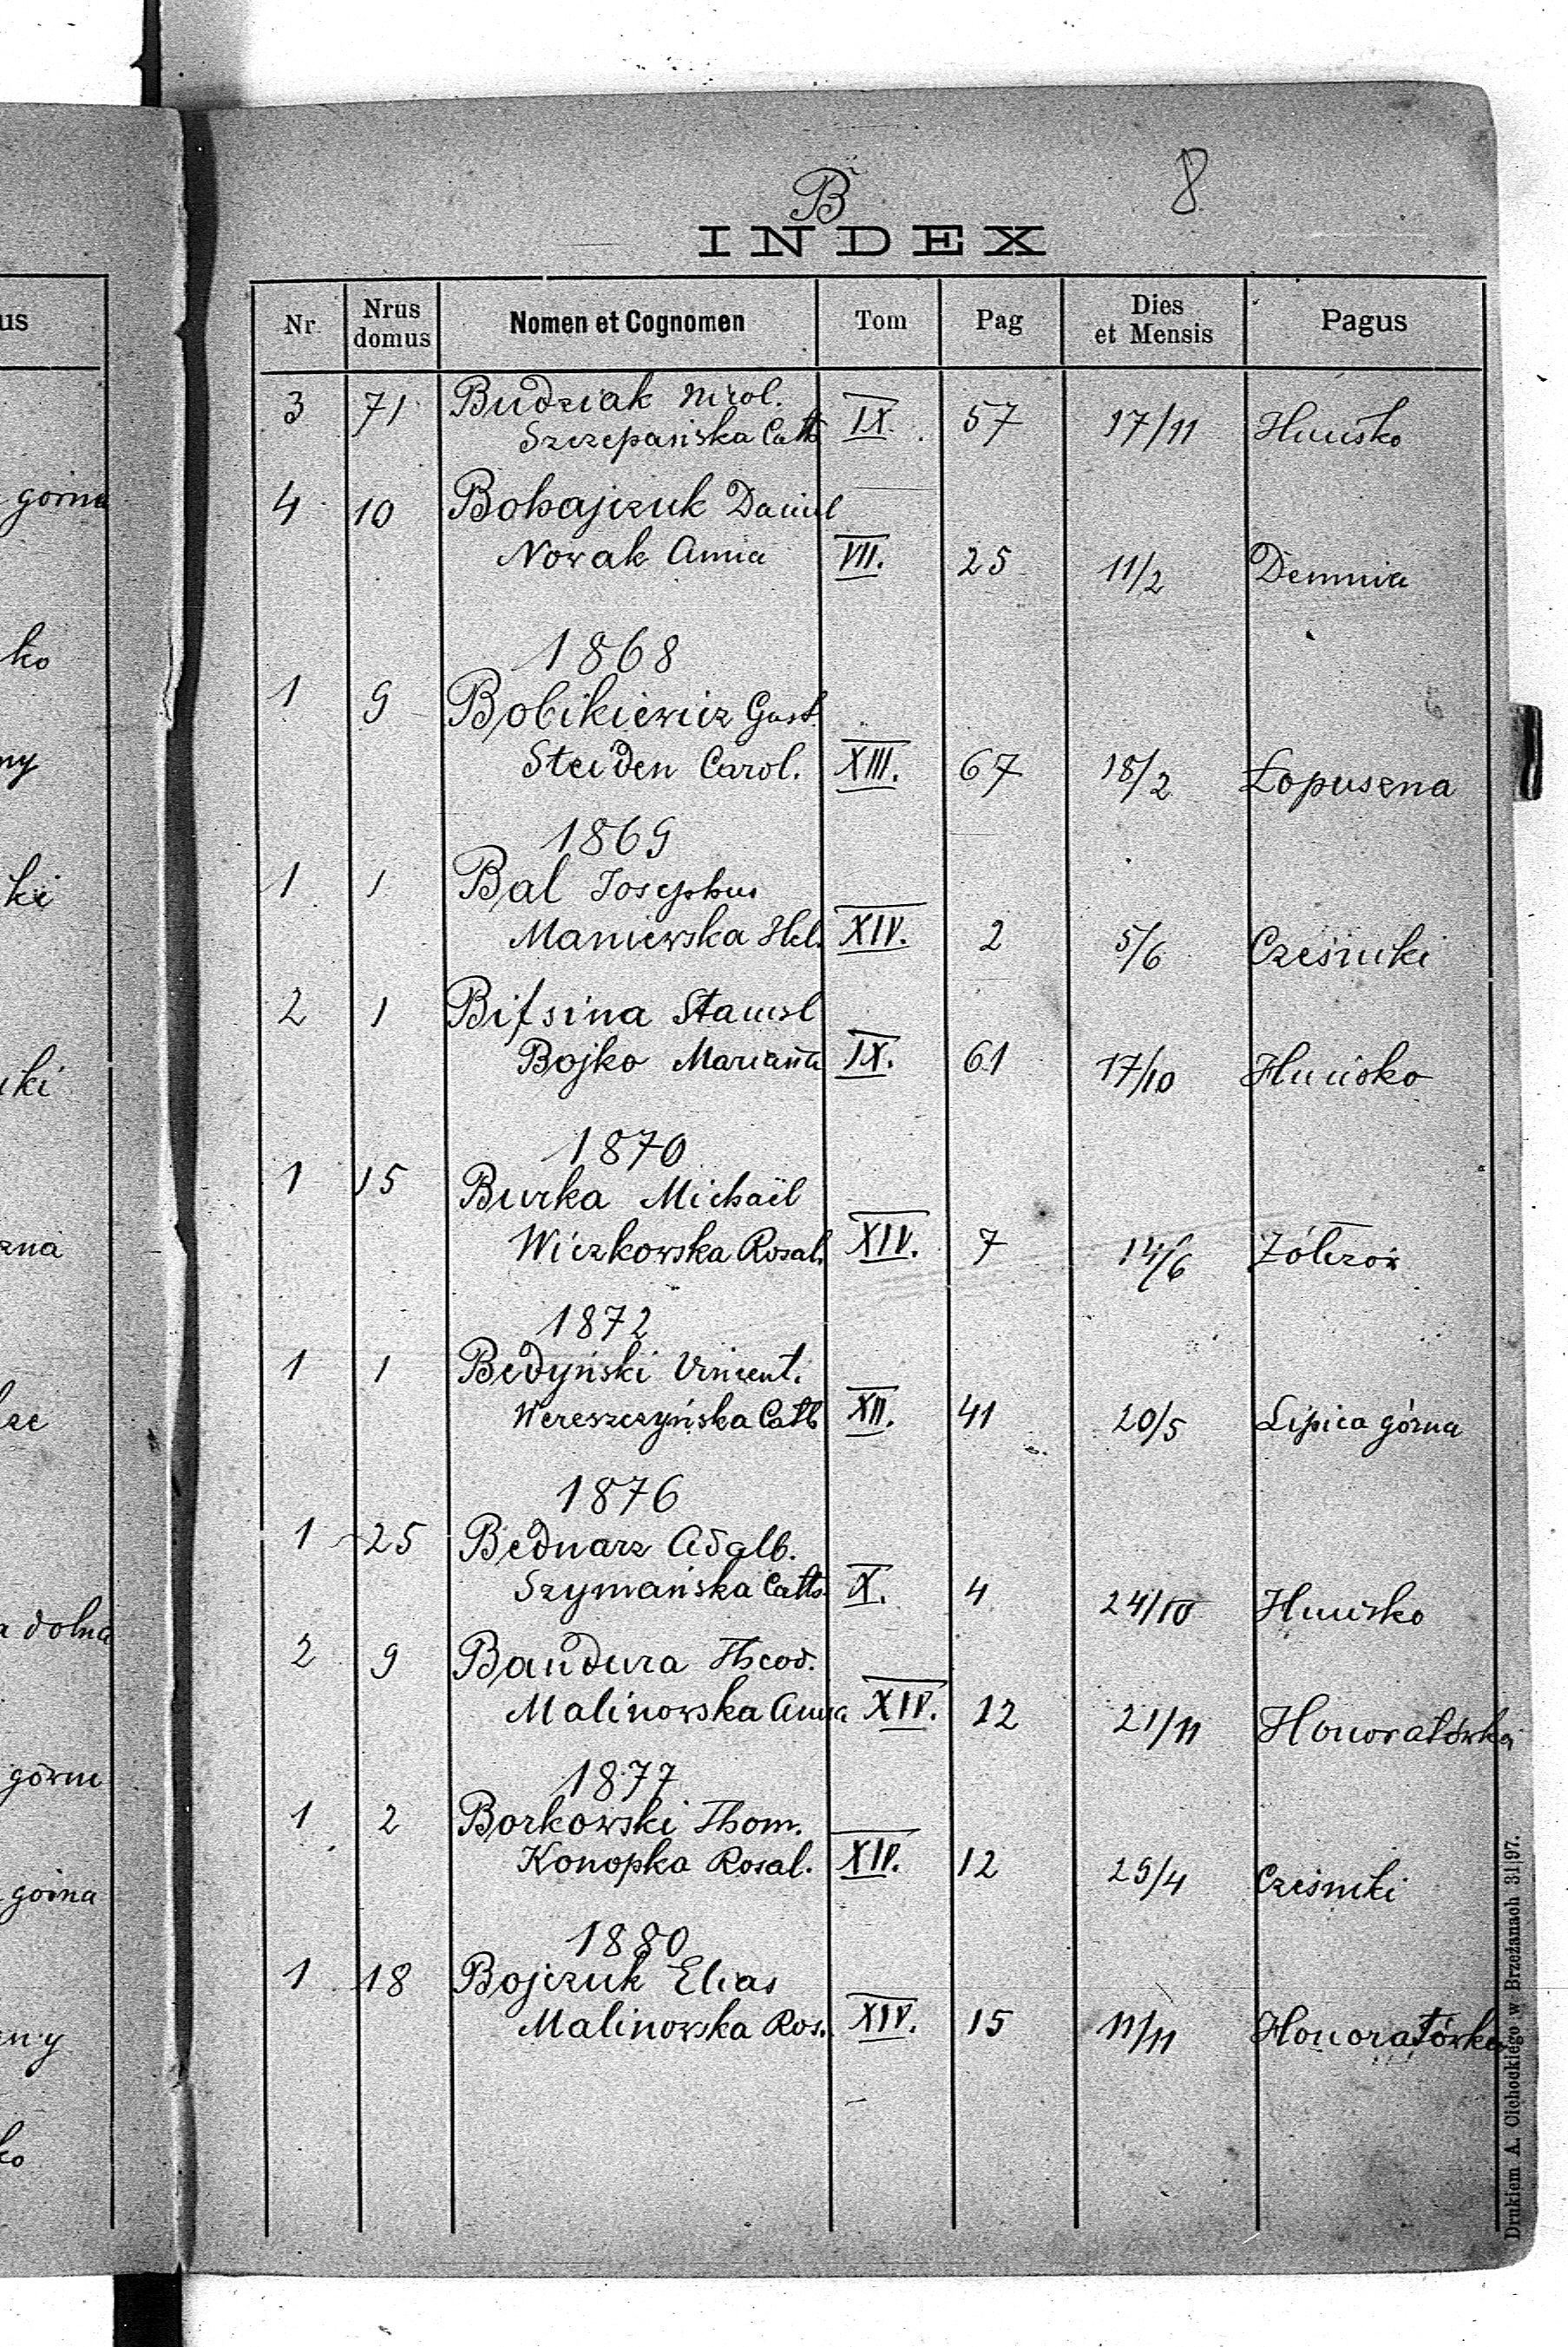 B 8
INDEX
Nr Nrus domus Nomen et Cognomen Tom Pag Dies et Mensis Pagus
3 71 Budziak Nicol.
Szczepańska Cath IX. 57 17/11 Hucisko
4 10 Bohajczuk Daniel
Nowak Anna VII. 25 11/2 Demnia
1868
1 9 Bobikiewicz Gust.
Steiden Carol. XIII. 67 18/2 Łopuszna
1869
1 1 Bal Josephus
Maniewska Hel. XIV. 2 5/6 Cześniki
2 1 Bifsina Stanisl
Bojko Marianna IX. 61 17/10 Hucisko
1870
1 15 Burka Michaël
Wiczkowska Rosal. XIV. 7 14/6 Żólczów
1872
1 1 Bedyński Vincent.
Wereszczyńska Cath XII. 41 20/5 Lipica górna
1876
1 25 Bednarz Adalb.
Szymańska Cath X. 4 24/10 Hucisko
2 9 Bandura Theod.
Malinowska Anna XIV. 12 21/11 Honoratówka
1877
1 2 Borkowski Thom.
Konopka Rosal. XIV. 12 29/4 Cześniki
1880
1 18 Bojczuk Elias
Malinowska Ros. XIV. 15 11/11 Honoratówka
Drukiem A. Cichockiego w Brzeżanach 31|97.
us
górna
ko
ny
ki
iki
zna
górne
górna